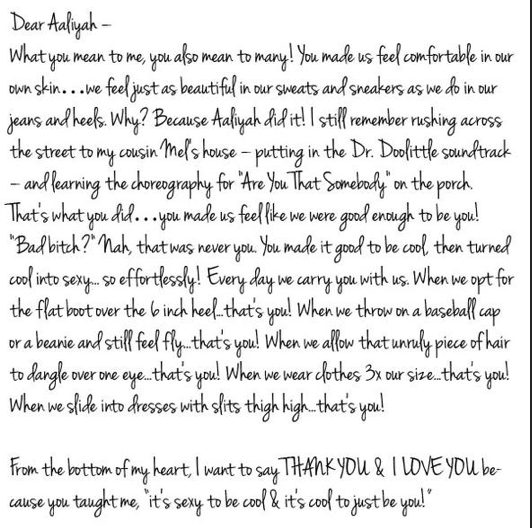 Dear Aaliyah –
What you mean to me, you also mean to many! You made us feel comfortable in our
own skin...we feel just as beautiful in our sweats and sneakers as we do in our
jeans and heels. Why? Because Aaliyah did it! I still remember rushing across
the street to my cousin Mel's house – putting in the Dr. Doolittle soundtrack
– and learning the choreography for "Are You That Somebody" on the porch.
That's what you did...you made us feel like we were good enough to be you!
"Bad bitch?" Nah, that was never you. You made it good to be cool, then turned
cool into sexy... so effortlessly! Every day we carry you with us. When we opt for
the flat boot over the 6 inch heel...that's you! When we throw on a baseball cap
or a beanie and still feel fly...that's you! When we allow that unruly piece of hair
to dangle over one eye...that's you! When we wear clothes 3x our size...that's you!
When we slide into dresses with slits thigh high...that's you!
From the bottom of my heart, I want to say THANK YOU & I LOVE YOU be-
cause you taught me, "it's sexy to be cool & it's cool to just be you!"